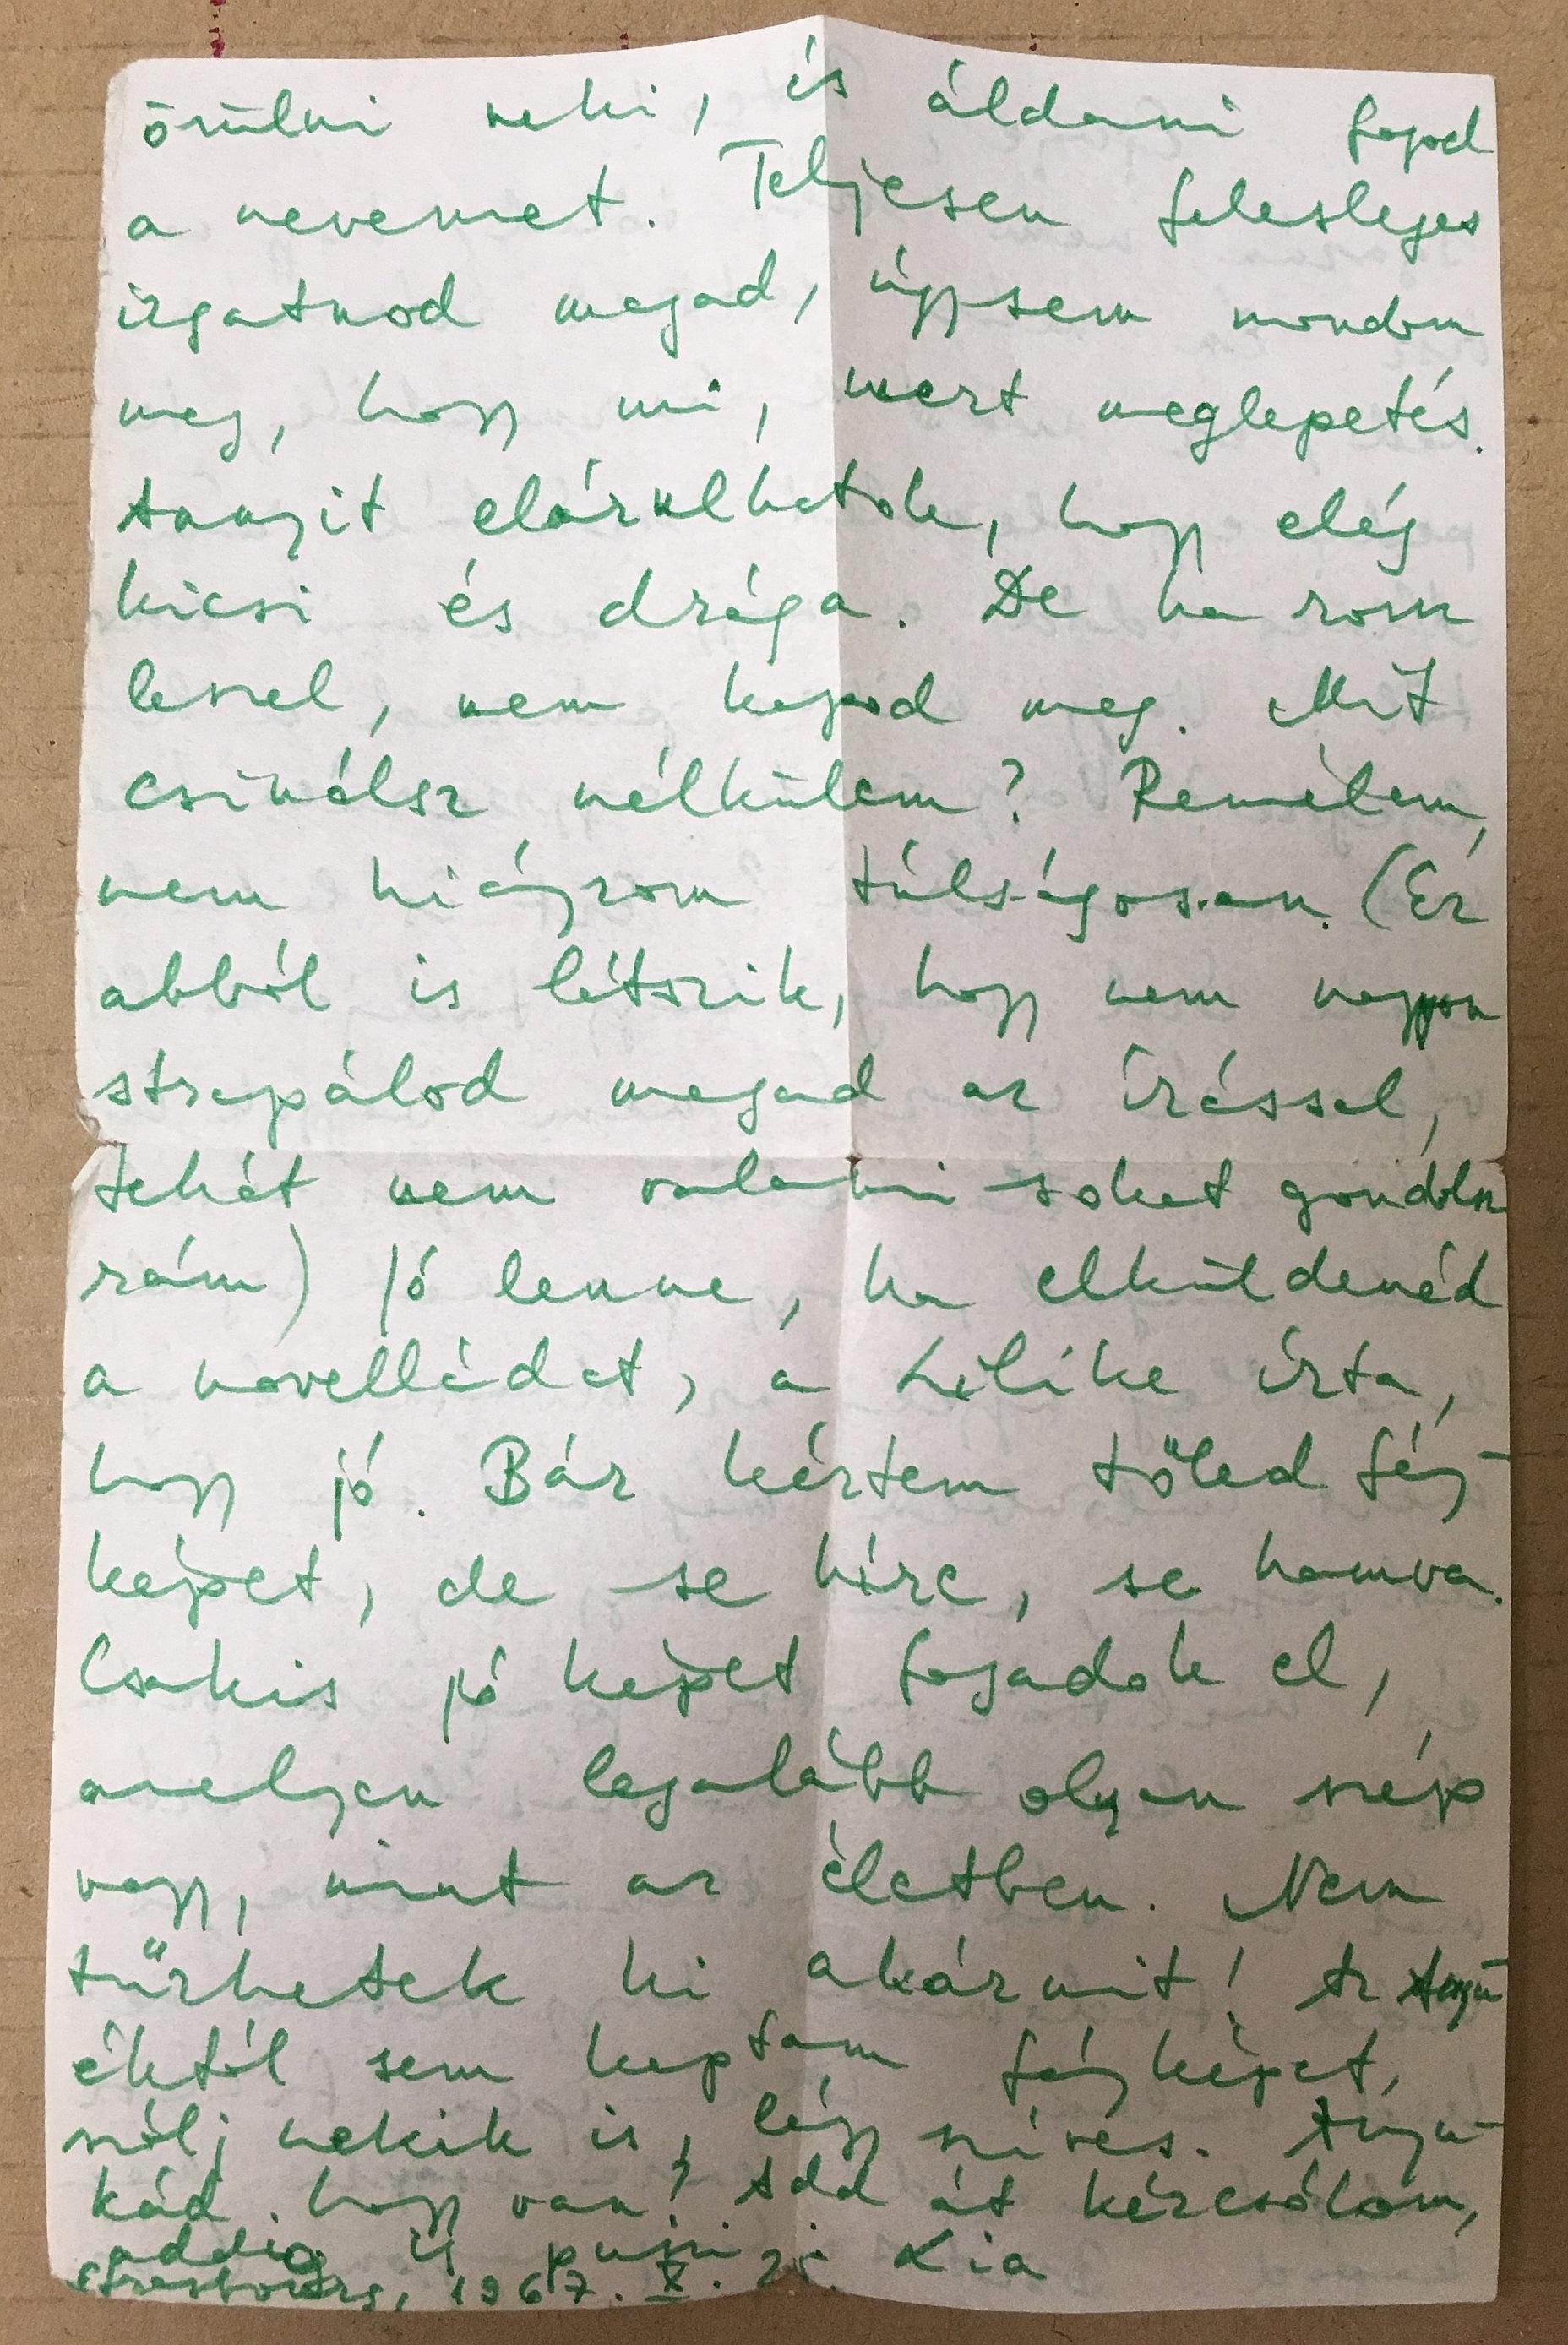 örülni neki, és áldani fogod
a nevemet. Teljesen felesleges
izgatnod magad, úgysem mondom
meg, hogy mi, mert meglepetés.
Annyit elárulhatok, hogy elég
kicsi és drága. De ha rossz
leszel, nem kapod meg. Mit
csinálsz nélkülem? Remélem,
nem hiányzom túlságosan. (Ez
abból is látszik, hogy nem nagyon
strapálod magad az írással,
tehát nem valami sokat gondolsz
rám) Jó lenne, ha elküldenéd
a novelládat, a Lilike írta,
hogy jó. Bár kértem tőled fény-
képet, de se híre, se hamva.
Csakis jó képet fogadok el,
amelyen legalább olyan szép
vagy, mint az életben. Nem
tűrhetek ki akármit! Az Anyu
éktól sem kaptam fényképet,
szólj nekik is, légy szíves. Anyu-
kád hogy van? Add át kézcsólom,
addig is puszi: Lia
Strasbourg, 1967. X.